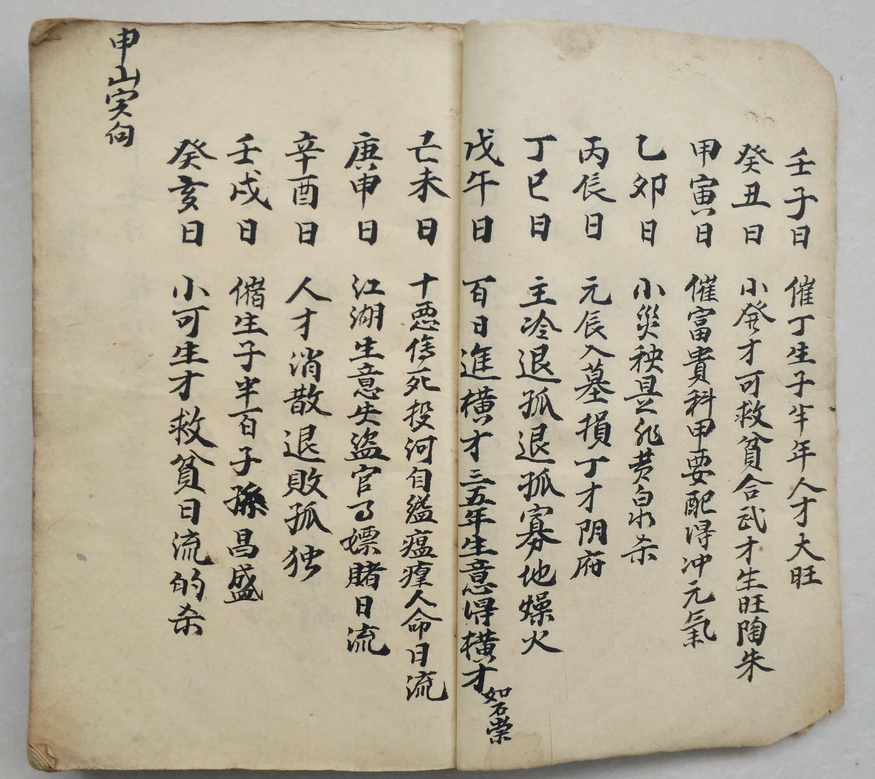 壬子日 催丁生子半年人才大旺
癸丑日 小發才可救貧合武才生旺陶朱
甲寅日 催富貴科甲要配得冲元氣
乙卯日 小災秧具黄白水杀
丙辰日 元辰入墓損丁才阴府
丁巳日 主冷退孤退孤寡地燥火
戊午日 百日進横才三五年生意得横才如石崇
己未日 十悪傷死投河自縊瘟㾮人命日流
庚申日 江湖生意失盗官嫖賭日流
辛酉日 人才消散退敗孤独
壬戌日 偹生子半百子孫昌盛
癸亥日 小可生才救貧日流的杀
申山向